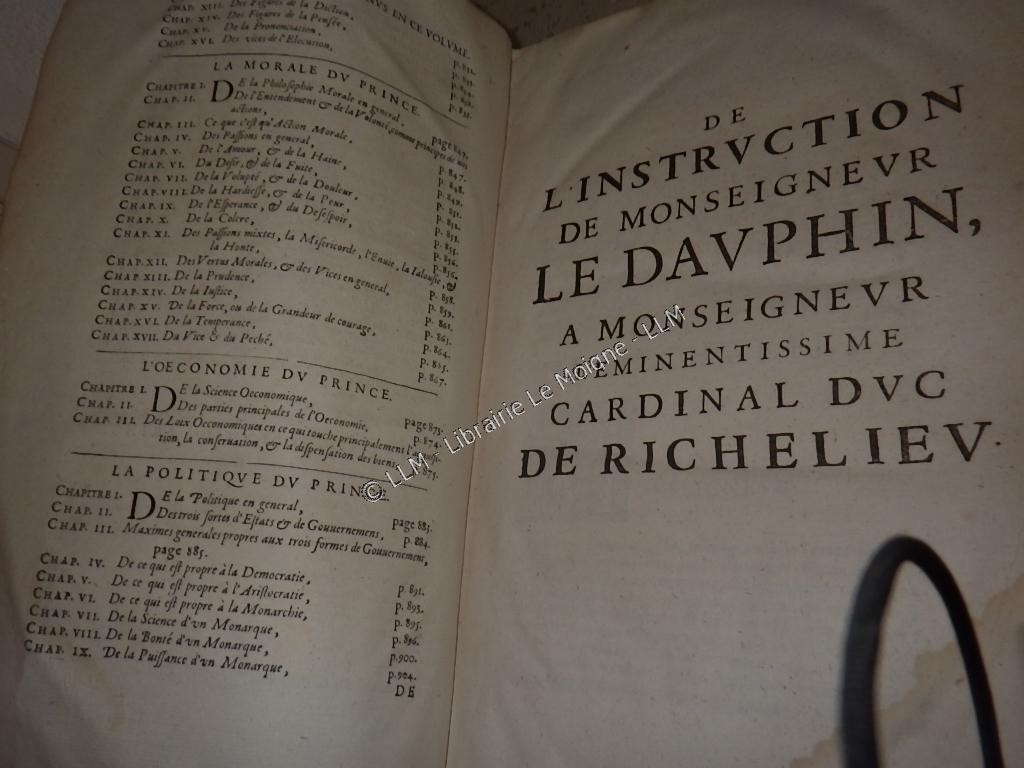 CHAP. XIII. Des Figures de la Diction,
NVS EN CE VOLVME.
CHAP. XIV. Des Figures de la Pensée,
CHAP. XV. De la Prononciation,
CHAP. XVI. Des vices de l'Elocution,
LA MORALE DV PRINCE.
CHAPITRE I. DE la Philosophie Morale en general, page 847.
CHAP. II. De l'Entendement & de la Volonté comme principes de nos
actions, p. 847.
CHAP. III. Ce que c'est qu'Action Morale, p. 848.
CHAP. IV. Des Passions en general,
CHAP. V. De l'Amour, & de la Haine,
CHAP. VI. Du Desir, & de la Fuite,
CHAP. VII. De la Volupté, & de la Douleur,
CHAP. VIII. De la Hardiesse, & de la Peur,
CHAP. IX. De l'Esperance, & du Desespoir,
CHAP. X. De la Colere,
CHAP. XI. Des Passions mixtes, la Misericorde, l'Enuie, la Ialousie, &
la Honte, p. 856.
CHAP. XII. Des Vertus Morales, & des Vices en general, p. 858.
CHAP. XIII. De la Prudence, p. 859.
CHAP. XIV. De la Iustice, p. 861.
CHAP. XV. De la Force, ou de la Grandeur de courage, p. 863.
CHAP. XVI. De la Temperance, p. 864.
CHAP. XVII. Du Vice & du Peché, p. 867.
L'OECONOMIE DV PRINCE.
CHAPITRE I. DE la Science Oeconomique, page 873.
CHAP. II. Des parties principales de l'Oeconomie, p. 874.
CHAP. III. Des Loix Oeconomiques en ce qui touche principalement
tion, la conseruation, & la dispensation des biens,
LA POLITIQVE DV PRINCE.
CHAPITRE I. DE la Politique en general, page 883.
CHAP. II. Des trois sortes d'Estats & de Gouuernemens, p. 884.
CHAP. III. Maximes generales propres aux trois formes de Gouuernement,
page 885.
CHAP. IV. De ce qui est propre à la Democratie, p. 891.
CHAP. V. De ce qui est propre à l'Aristocratie, p. 893.
CHAP. VI. De ce qui est propre à la Monarchie, p. 895.
CHAP. VII. De la Science d'vn Monarque, p. 896.
CHAP. VIII. De la Bonté d'vn Monarque, p. 900.
CHAP. IX. De la Puissance d'vn Monarque, p. 924.
DE
DE
L'INSTRVCTION
DE MONSEIGNEVR
LE DAVPHIN,
A MONSEIGNEVR
EMINENTISSIME
CARDINAL DVC
DE RICHELIEV.
© LLM - Librairie Le Moigne - LLM